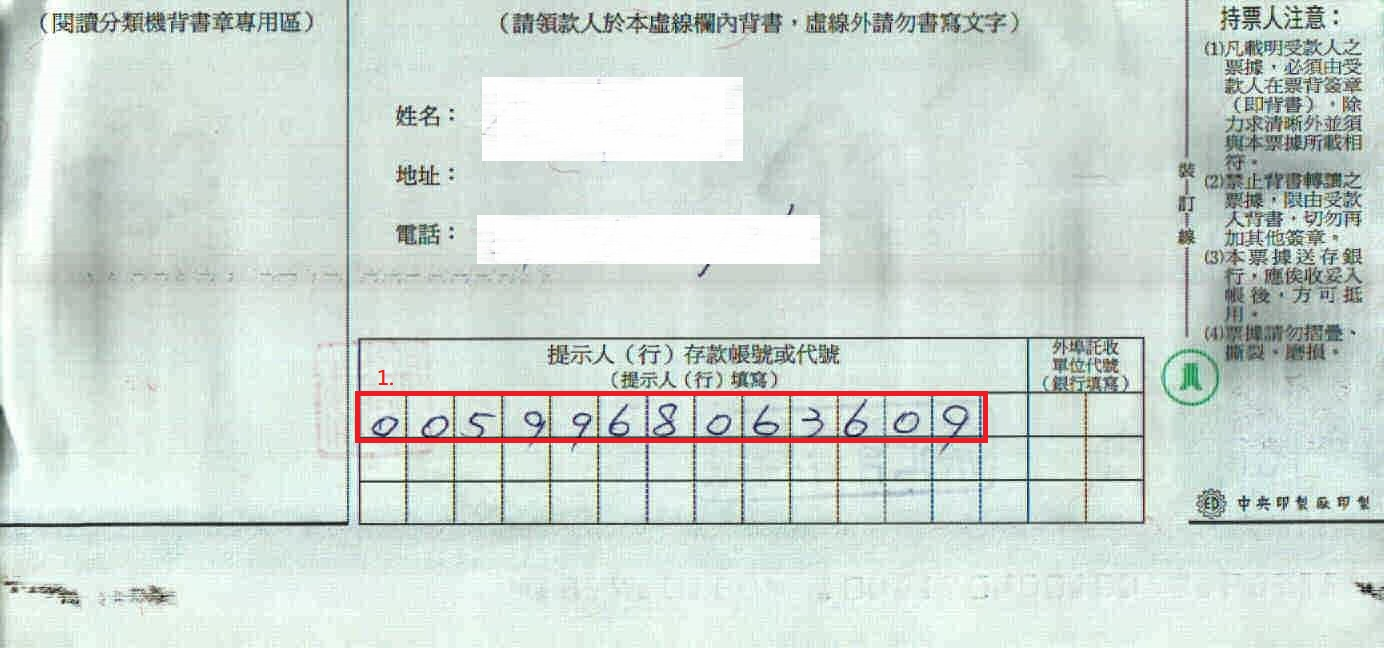 (閱讀分類機背書章專用區)
(請領款人於本虛線欄內背書，虛線外請勿書寫文字)
姓名：
地址：
電話：
提示人(行)存款帳號或代號
(提示人(行)填寫)
外埠託收
單位代號
(銀行填寫)
1.
0059968063609
裝訂線
持票人注意：
(1)凡載明受款人之
票據，必須由受
款人在票背簽章
(即背書)，除
力求清晰外並須
與本票據所載相
符。
(2)禁止背書轉讓之
票據，限由受款
人背書，切勿再
加其他簽章。
(3)本票據送存銀
行，應俟收妥入
帳後，方可抵
用。
(4)票據請勿摺疊、
撕裂。磨損。
中央印製廠印製